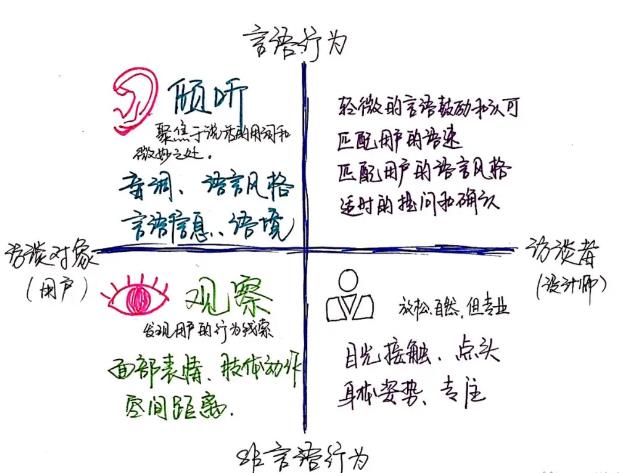 言语行为
倾听
聚焦于说话的用词和
微妙之处。
音调、语言风格
言语信息、语境
轻微的言语鼓励和认可
匹配用户的语速
匹配用户的语言风格
适时的提问和确认
访谈对象
(用户)
访谈者
(设计师)
观察
发现用户的行为线索
面部表情、肢体动作
空间距离.
放松.自然,但专业
目光接触、点头
身体姿势、专注
非言语行为